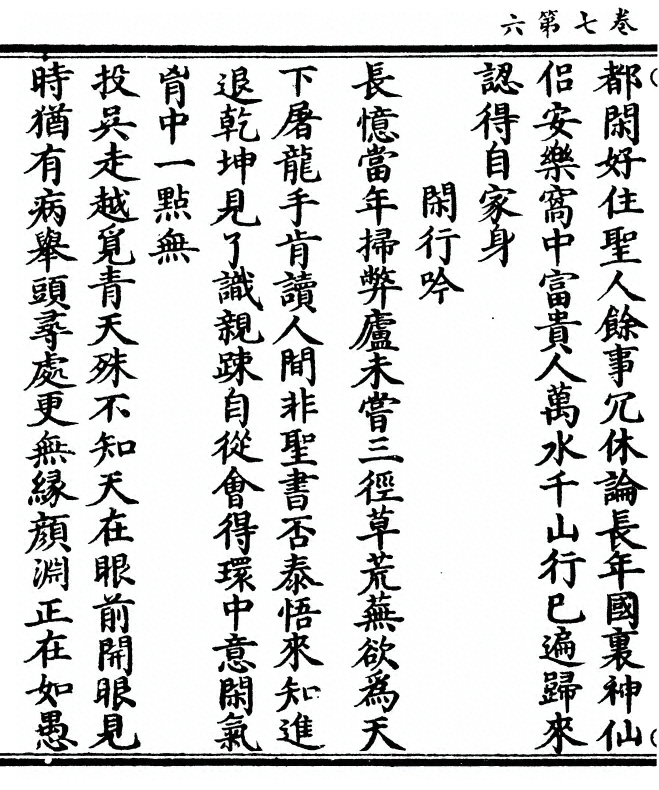 卷七第六
都閑好住聖人餘事冗休論長年國裏神仙
侣安樂窩中富貴人萬水千山行已遍歸來
認得自家身
閑行吟
長憶當年掃弊廬未嘗三徑草荒蕪欲爲天
下屠龍手肯讀人間非聖書否泰悟來知進
退乾坤見了識親踈自從會得環中意閑氣
胷中一點無
投吳走越覓青天殊不知天在眼前開眼見
時猶有病舉頭尋處更無縁顔淵正在如愚